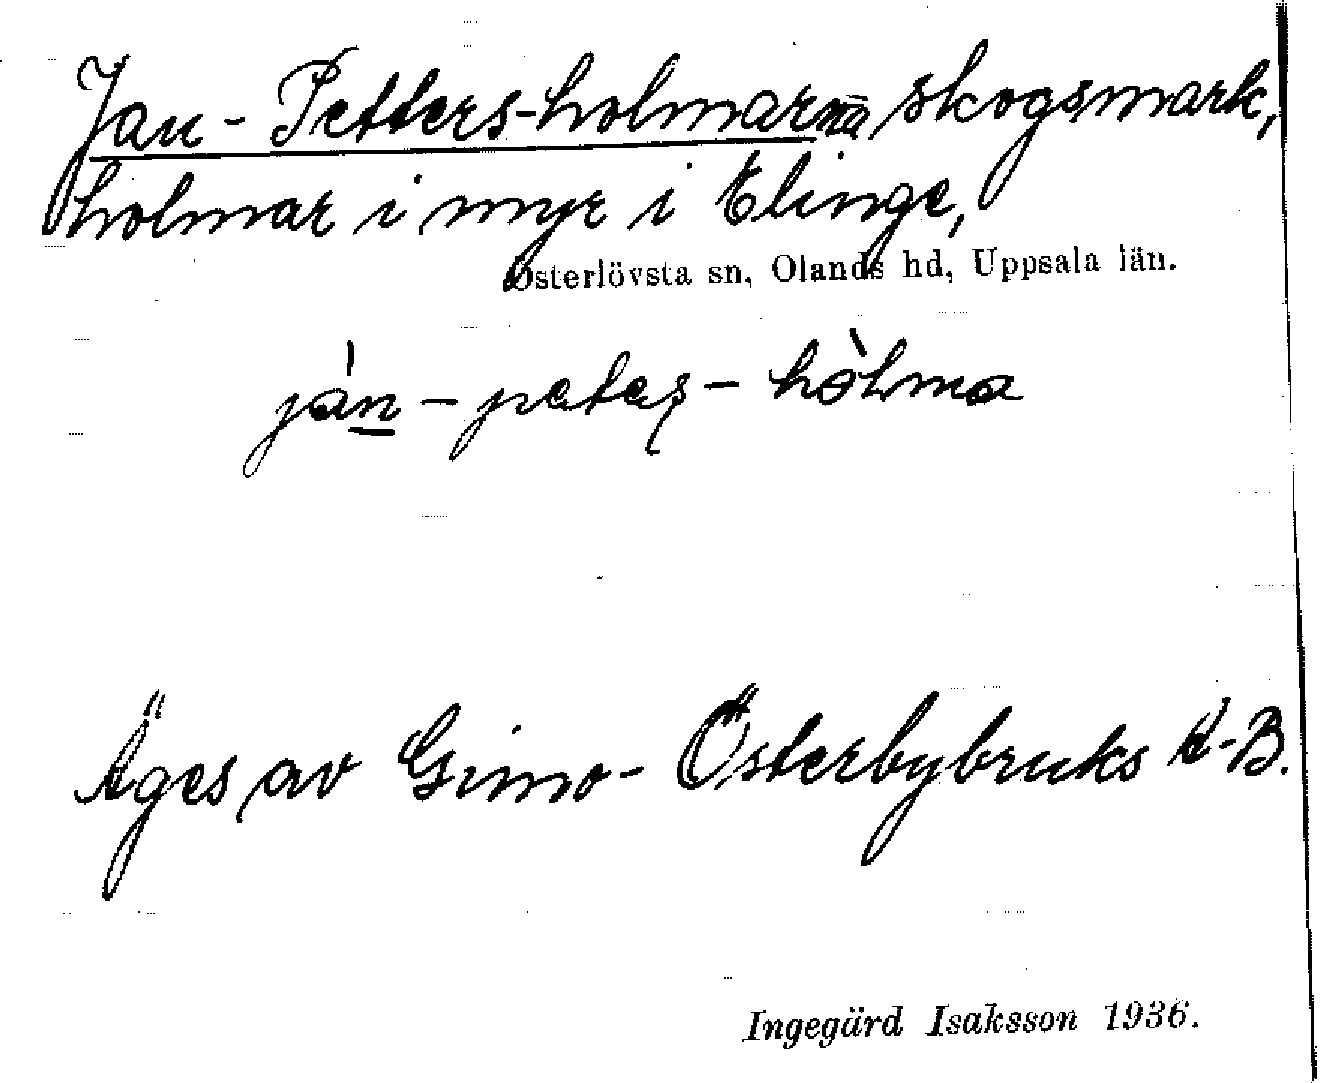 Jan-Petters-holmarna skogsmark,
holmar i myr i Elinge,
Österlövsta sn, Olands hd, Uppsala län.
ján-petaş-hòlma
Äges av Gimo-Österbybruks A-B.
Ingegärd Isaksson 1936.